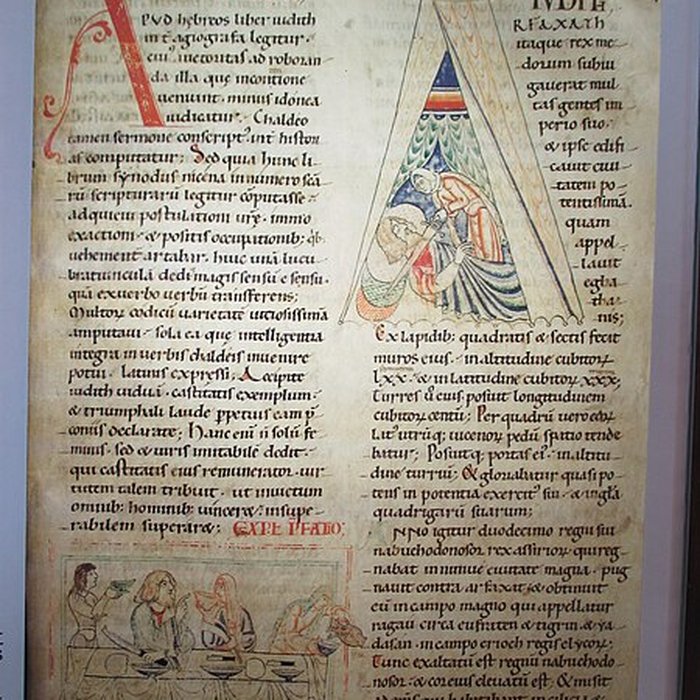 APUD hebreos liber iudith
int̄ agiografa legitur.
cui᾽ auctoritas ad roboran
da illa que incontione
ueniunt. minus idonea
iudicatur. Chaldeo
tamen sermone conscript᾽ int̄ histori
as computatur; Sed quia hunc li
brum synodus nicena innumero scā
rū scripturarū legitur cōputasse.
adquieui postulationi urę. immo
exactioni. & positis occupationib; q̇b
uehementer artabar. huic unā lucu
bratiunculā dedi. magis sensū e sensu.
quā exuerbo uerbū transferens;
Multorū codicū uarietatē uitiosissimā
amputaui. sola ea que intelligentia
integra in uerbis chaldeis inuenire
potui. latinis expressi; Accipite
iudith uiduā. castitatis exemplum.
& triumphali laude ppetuis eam p̄
coniis declarate; Hanc enī ñ solū fe
minis. sed & uiris imitabilē dedit.
qui castitatis eius remunerator. uir
tutem talem tribuit. ut inuictum
omnib; hominib; uinceret. insupe
rabilem superaret; EXPL PFATIO;
IUDITH
ARFAXATH
itaque rex me
dorum subiu
gauerat mul
tas gentes im
perio suo.
& ipse edifi
cauit ciui
tatem po
tentissimā.
quam
appel
lauit
egba
tha
nis;
Ex lapidib; quadratis & sectis fecit
muros eius. in altitudine cubitoꝝ
lxx. & in latitudine cubitoꝝ xxx;
Turres ū eius posuit longitudinem
cubitoꝝ centū; Per quadrū uero eoꝝ
lat᾽ utrūq; uicenoꝝ pedū spatio tende
batur; Posuitq; portas ei᾽. in altitu
dine turriū; & gloriabatur quasi po
tens in potentia exercit᾽ sui. & in głā
quadrigarū suarum;
ANNO igitur duodecimo regni sui
nabuchodonosor rex assirioꝝ qui reg
nabat in niniue ciuitate magna. pug
nauit contra arfaxat & obtinuit
eū in campo magno qui appellatur
ragau circa eufraten & tigrin & ya
dasan. in campo erioch regis elycoꝝ;
Tunc exaltatū est regnū nabuchodo
nosor. & cor eius eleuatū est. & misit